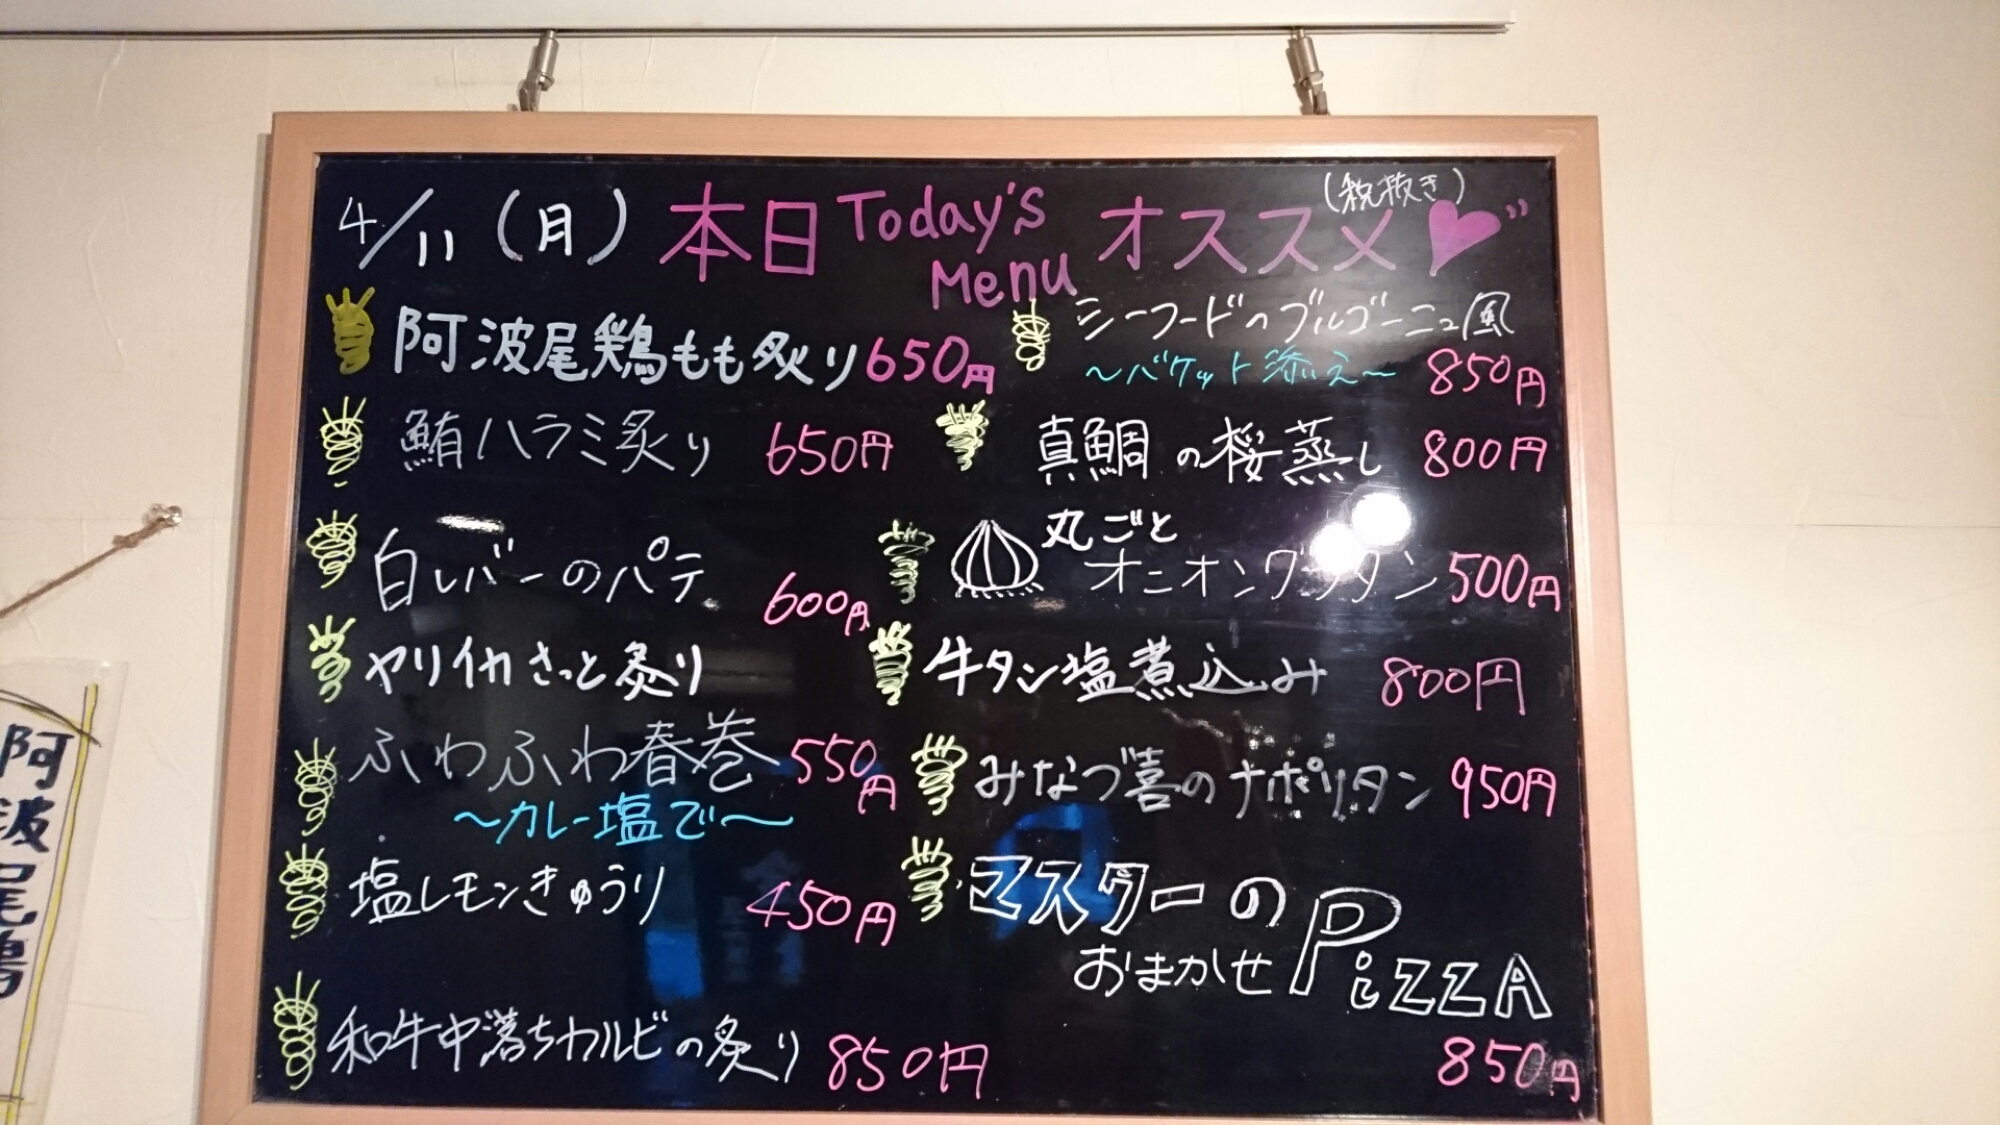 4/11(月) 本日 Today's Menu オススメ
(税抜き)
阿波尾鶏もも炙り 650円
鮪ハラミ炙り 650円
白レバーのパテ 600円
ヤリイカさっと炙り
ふわふわ春巻 550円
~カレー塩で~
塩レモンきゅうり 450円
和牛中落ちカルビの炙り 850円
シーフードのブルゴーニュ風
~バケット添え~ 850円
真鯛の桜蒸し 800円
丸ごと
オニオングラタン 500円
牛タン塩煮込み 800円
みなづ喜のナポリタン 950円
マスターの
おまかせ PiZZA
850円
阿波尾鶏